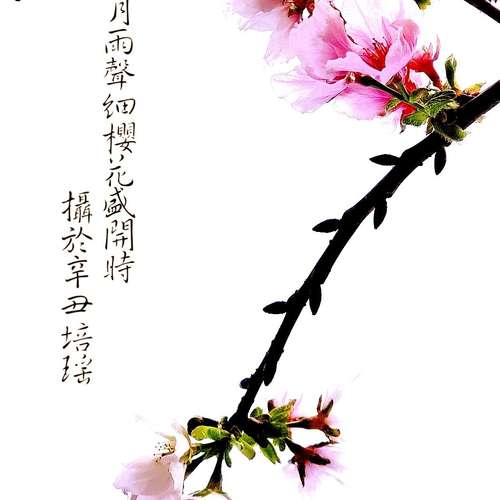 月雨聲細櫻花盛開時
攝於辛丑培瑤